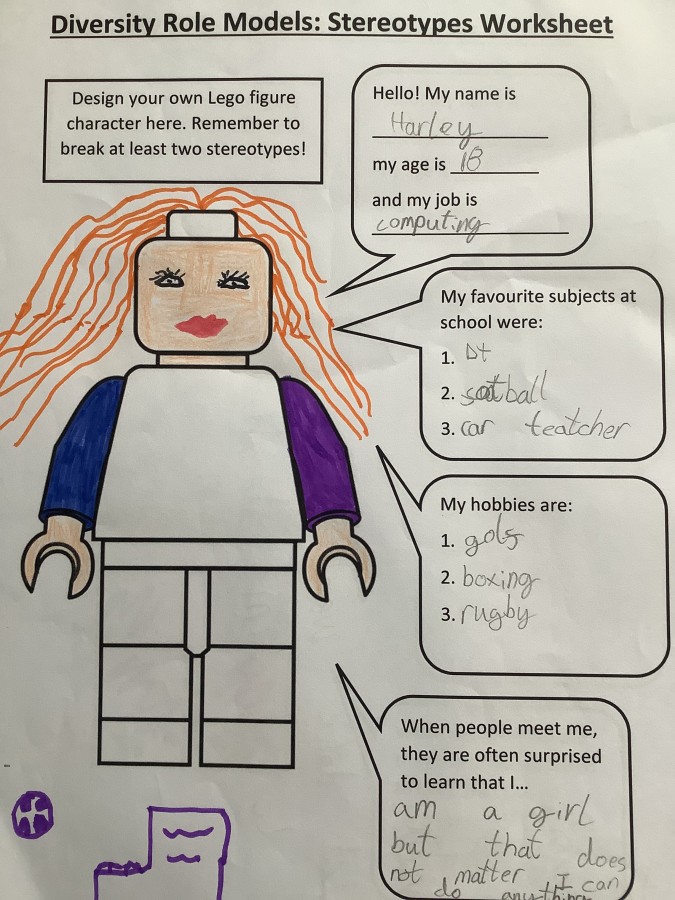 Diversity Role Models: Stereotypes Worksheet
Design your own Lego figure
character here. Remember to
break at least two stereotypes!
Hello! My name is
Harley
my age is 18
and my job is
computing
My favourite subjects at
school were:
1. Dt
2. ball
3. car teatcher
My hobbies are:
1. golf
2. boxing
3. rugby
When people meet me,
they are often surprised
to learn that I...
am a girl
but that does
not matter I can
do anything